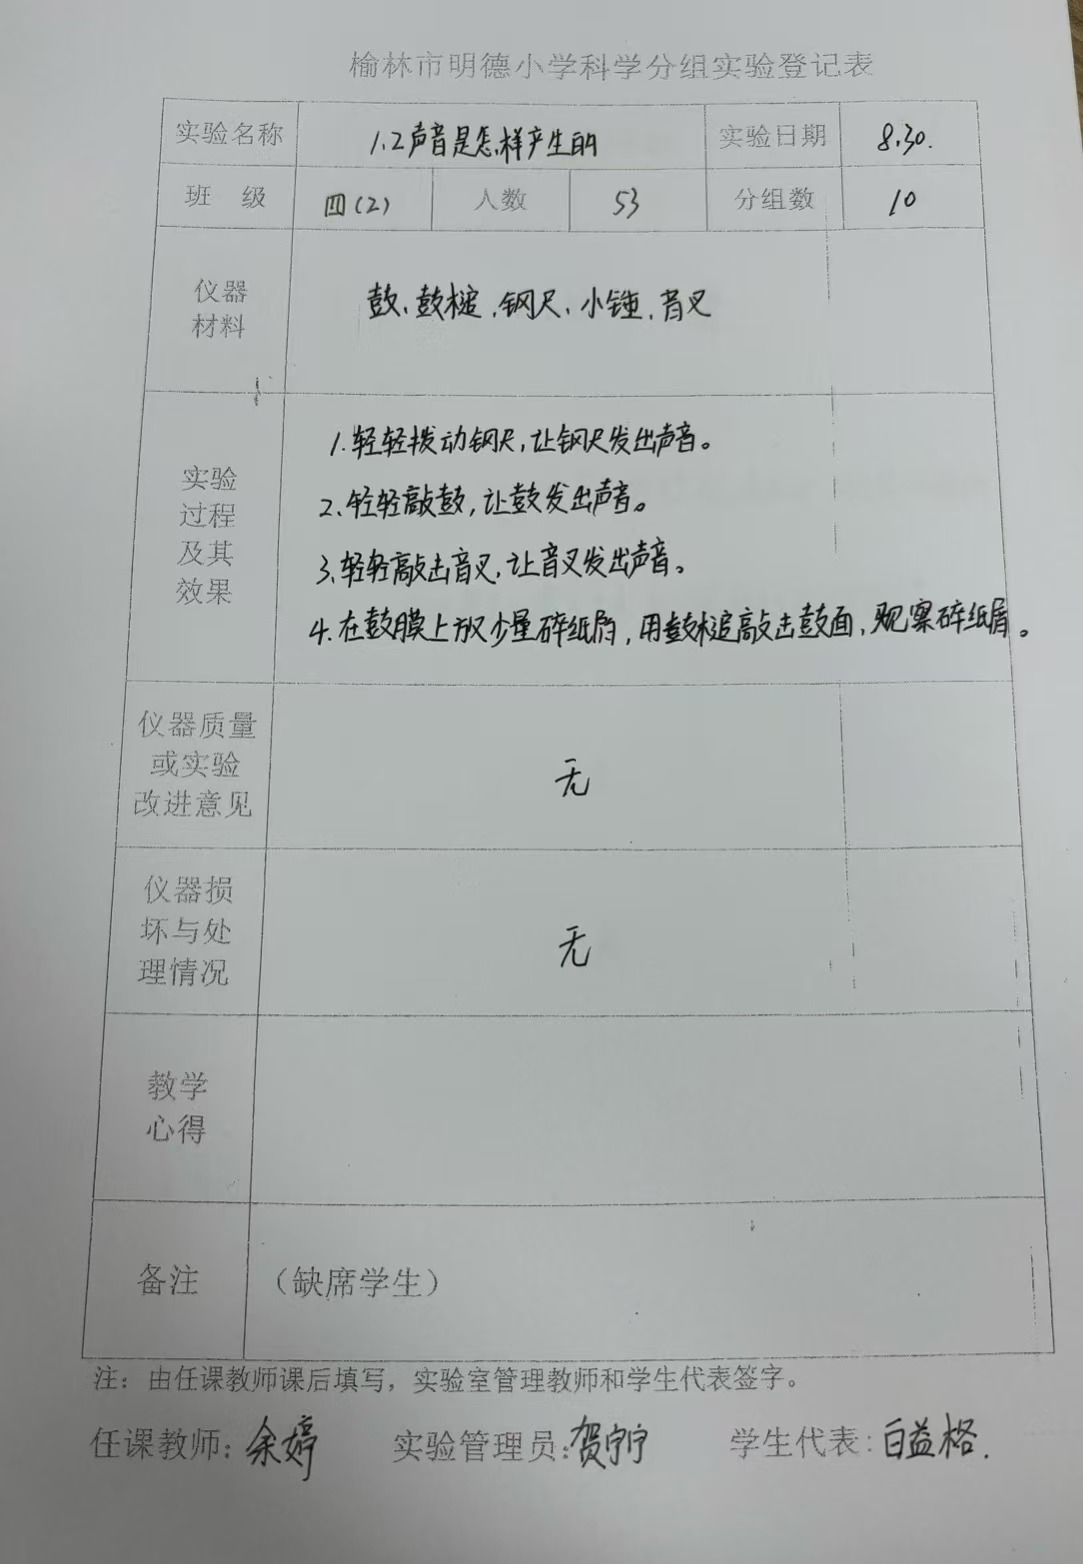 榆林市明德小学科学分组实验登记表
实验名称 1.2声音是怎样产生的 实验日期 8.30.
班 级 四(2) 人数 53 分组数 10
仪器
材料
鼓、鼓槌、钢尺、小锤、音叉
实验
过程
及其
效果
1.轻轻拨动钢尺,让钢尺发出声音。
2.轻轻敲鼓,让鼓发出声音。
3.轻轻敲击音叉,让音叉发出声音。
4.在鼓膜上放少量碎纸屑,用鼓槌敲击鼓面,观察碎纸屑。
仪器质量
或实验
改进意见
无
仪器损
坏与处
理情况
无
教学
心得
备注 (缺席学生)
注:由任课教师课后填写,实验室管理教师和学生代表签字。
任课教师:余婷 实验管理员:贺宁宁 学生代表:白益格.